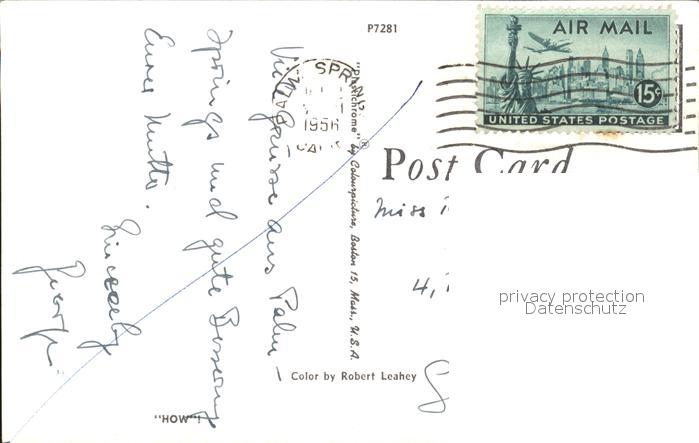 P7281
AIR MAIL
15¢
UNITED STATES POSTAGE
SPRIN
1956
CALIF
Post Card
"Plastichrome"® by Colourpicture, Boston 15, Mass., U.S.A.
Viele Grüsse aus Palm-
Springs und gute Besserung
Eurer Mutter.
Sincerely
Miss
4,
privacy protection
Datenschutz
Color by Robert Leahey
"HOW"!